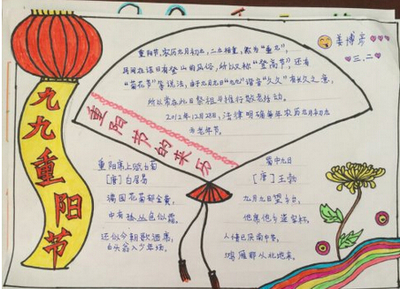 九九重阳节
重阳节,农历九月初九,二九相重,称为"重九",
民间在该日有登高的风俗,所以又称"登高节",还有
"菊花节"等说法,由于九月九日"九九"谐音"久久"有长久之意,
所以常在此日祭祖与推行敬老活动。
2012年12月28日,法律明确每年农历九月初九
为老年节。
三.二
重阳节的来历
重阳席上赋白菊
[唐]白居易
满园花菊郁金黄,
中有孤丛色似霜。
还似今朝歌酒席,
白头翁入少年场。
蜀中九日
[唐]王勃
九月九日望乡台,
他席他乡送客杯。
人情已厌南中苦,
鸿雁那从北地来。